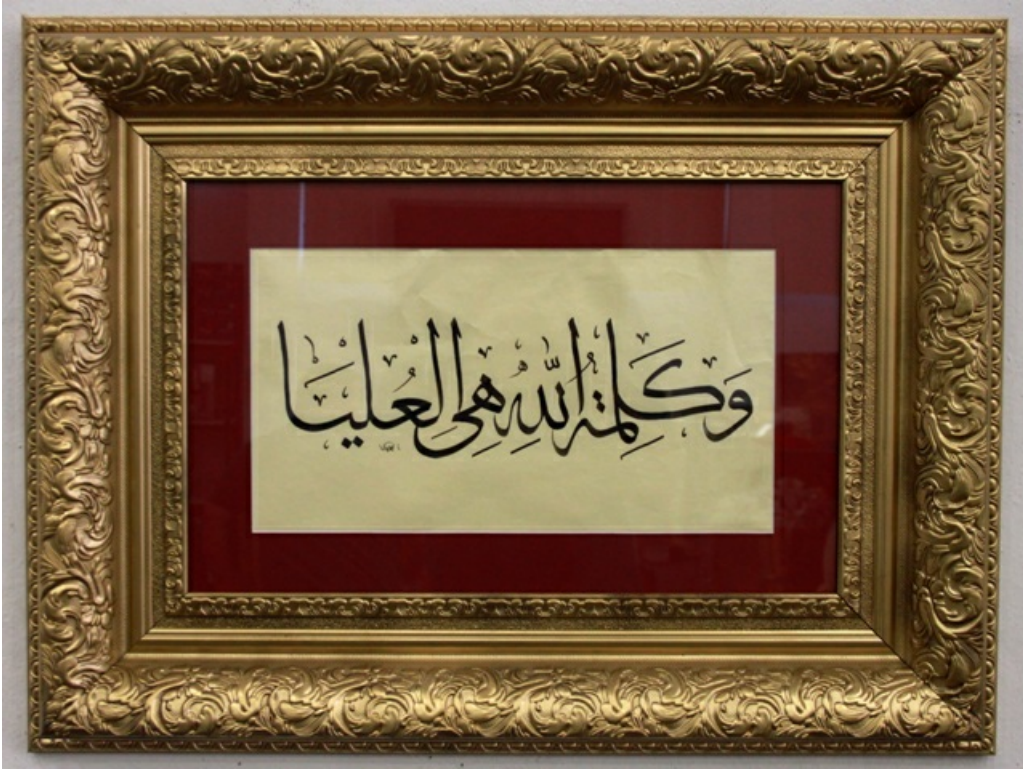 وَكَلِمَةُ اللَّهِ هِيَ الْعُلْيَا